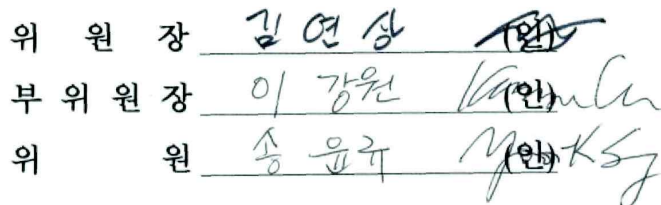 위 원 장 김 연 상 (인)
부 위 원 장 이 강원 (인)
위 원 송 윤규 (인)